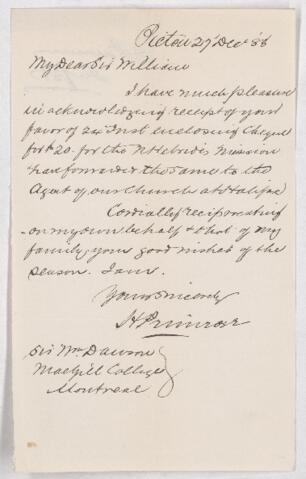 Pictou 27 Decr 88
My Dear Sir William
I have much pleasure
in acknowledging receipt of your
favor of 24 Inst enclosing Cheque
for $20. for the N Hebrides Mission
& have forwarded the same to the
Agent of our Church at Halifax
Cordially reciprocating
on my own behalf & that of my
family your good wishes of the
season. I am
Yours sincerely
H Primrose
Sir Wm Dawson
MacGill College
Montreal